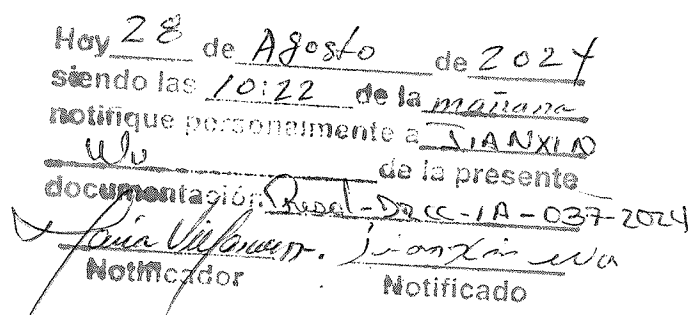 Hoy 28 de Agosto de 2024
siendo las 10:22 de la mañana
notifique personalmente a JIANXIN
Wu de la presente
documentación Resol-DRCC-IA-037-2024
Jianxin Wu
Notificador Notificado